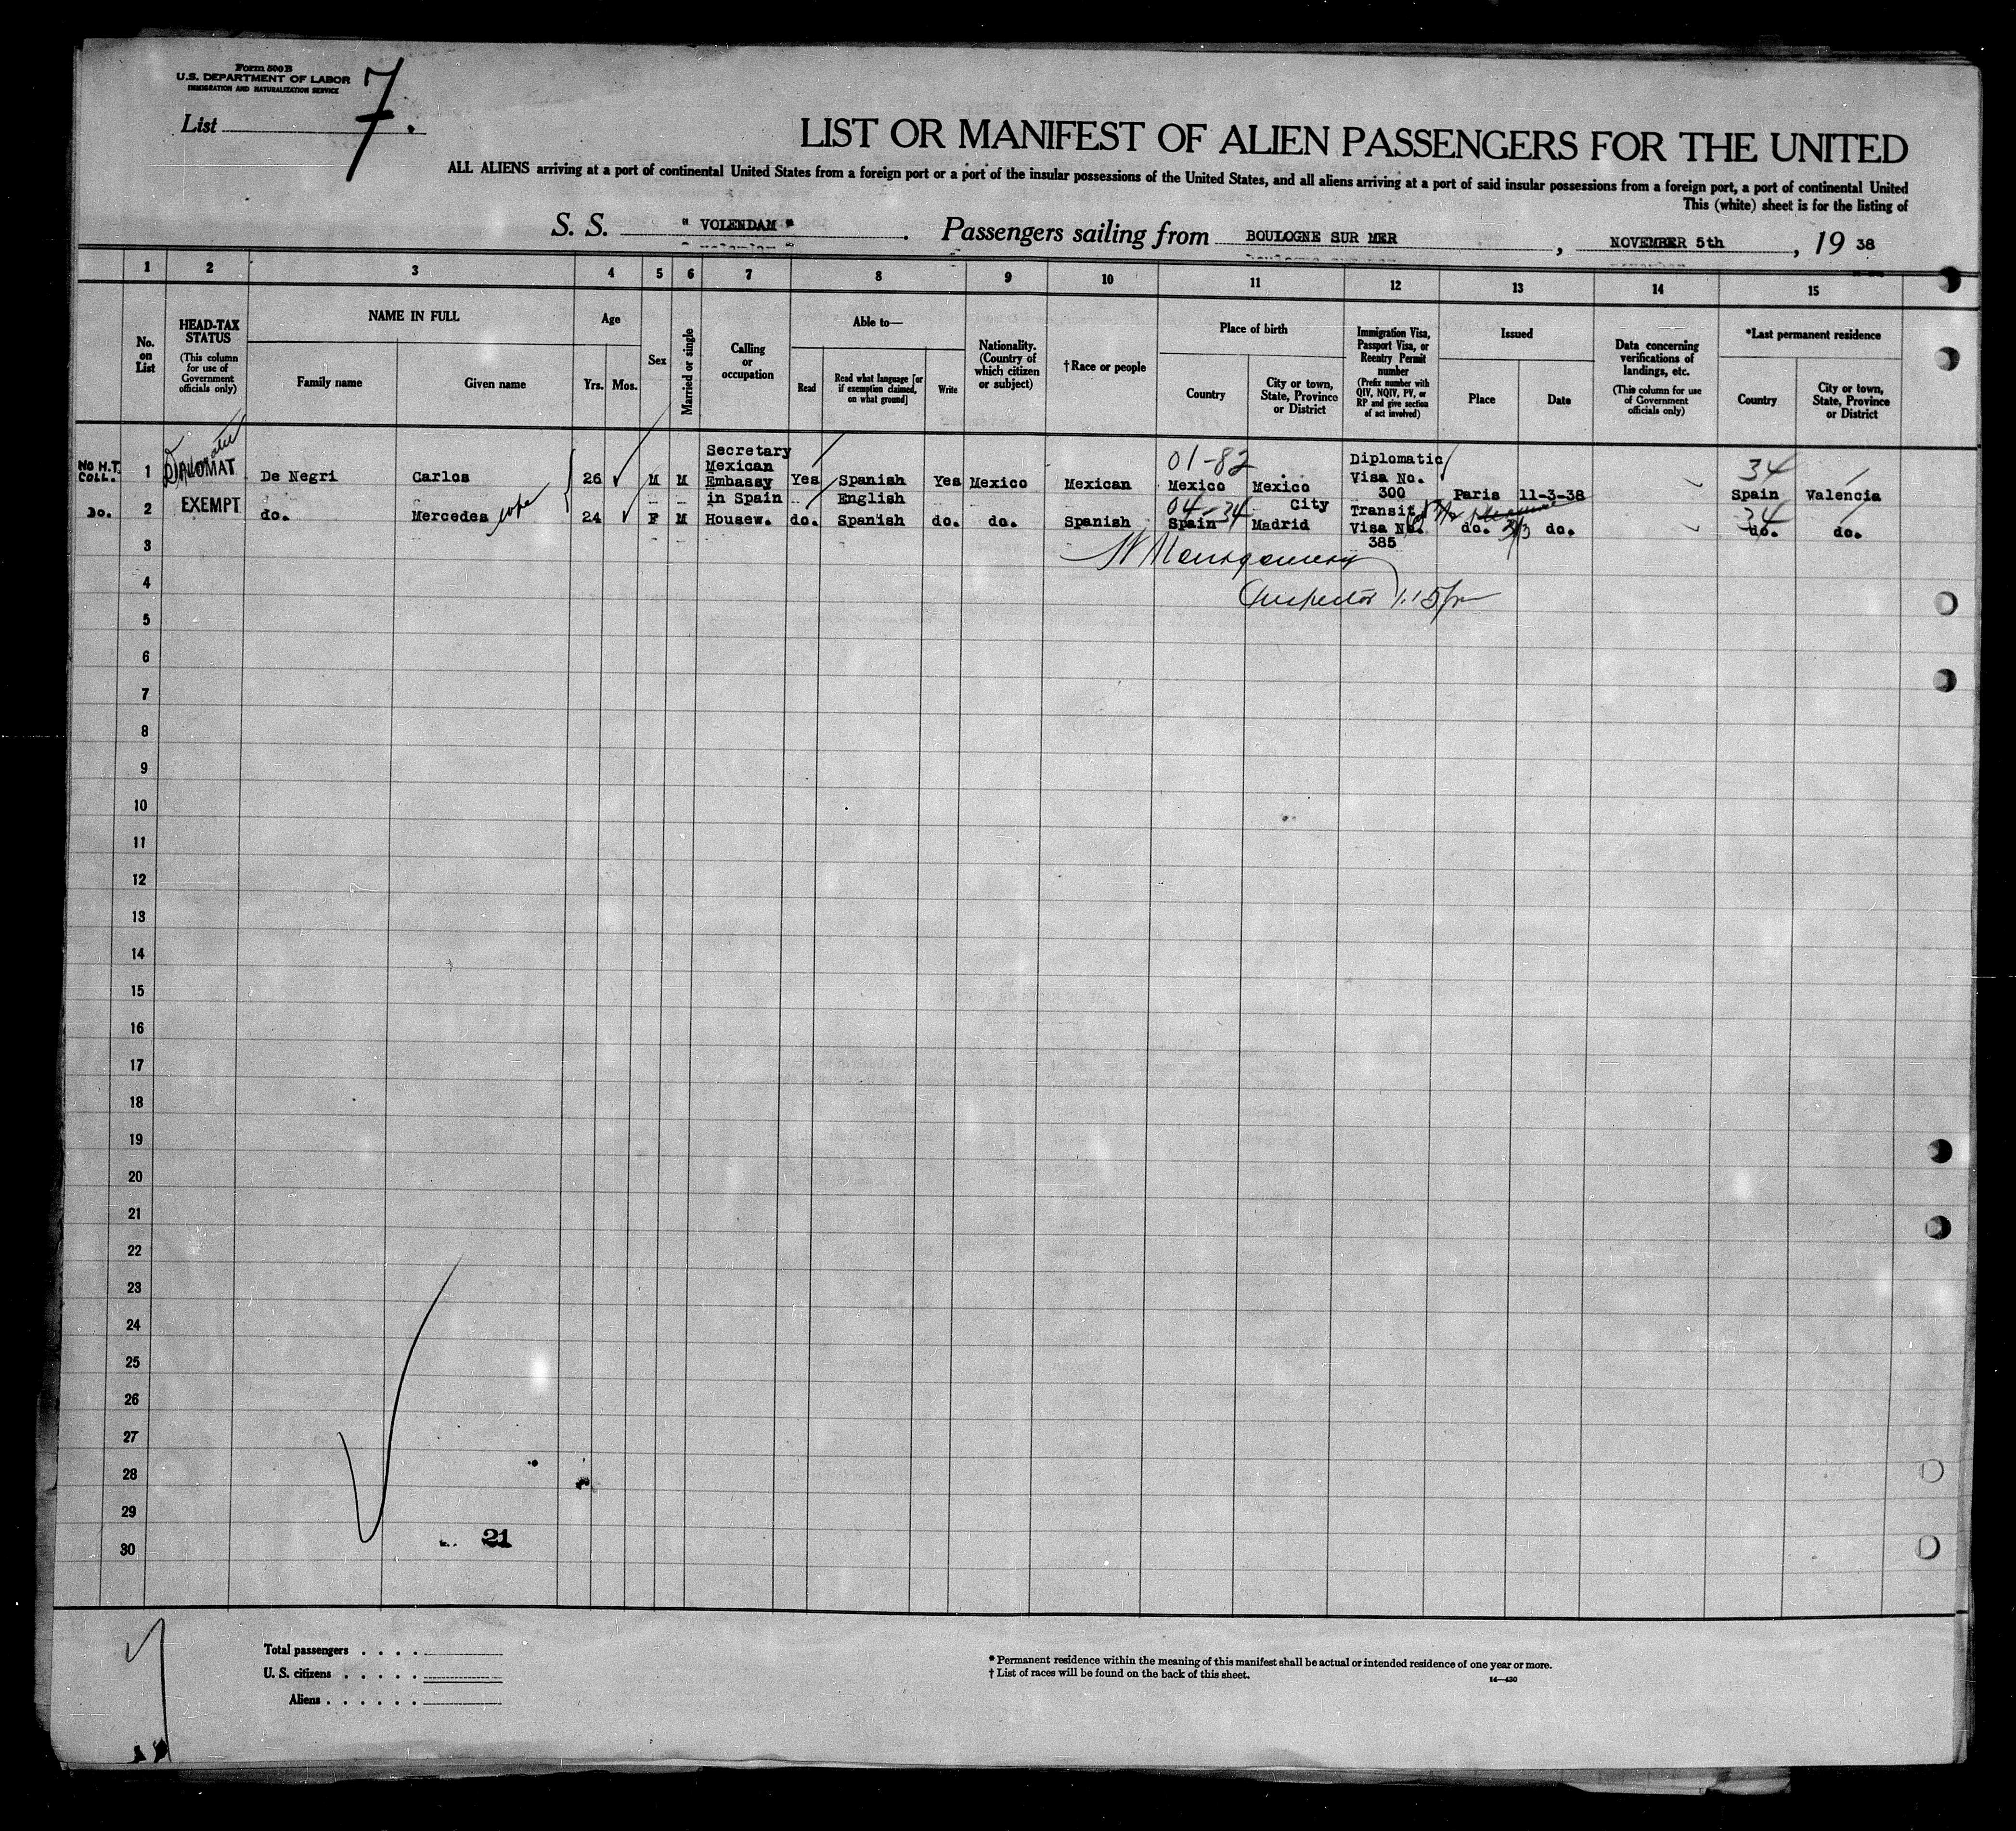 Form 500 B
U.S. DEPARTMENT OF LABOR
IMMIGRATION AND NATURALIZATION SERVICE
List 7.
LIST OR MANIFEST OF ALIEN PASSENGERS FOR THE UNITED
ALL ALIENS arriving at a port of continental United States from a foreign port or a port of the insular possessions of the United States, and all aliens arriving at a port of said insular possessions from a foreign port, a port of continental United
This (white) sheet is for the listing of
S. S. " VOLENDAM " . Passengers sailing from BOULOGNE SUR MER , NOVEMBER 5th , 19 38
1 2 3 4 5 6 7 8 9 10 11 12 13 14 15
No. on List
HEAD-TAX STATUS
(This column for use of Government officials only)
NAME IN FULL
Family name
Given name
Age
Yrs. Mos.
Sex
Married or single
Calling or occupation
Able to—
Read
Read what language [or if exemption claimed, on what ground]
Write
Nationality. (Country of which citizen or subject)
†Race or people
Place of birth
Country
City or town, State, Province or District
Immigration Visa, Passport Visa, or Reentry Permit number
(Prefix number with QIV, NQIV, PV, or RP and give section of act involved)
Issued
Place
Date
Data concerning verifications of landings, etc.
(This column for use of Government officials only)
*Last permanent residence
Country
City or town, State, Province or District
NO H.T. COLL. 1 DIPLOMAT De Negri Carlos 26 M M Secretary Mexican Embassy in Spain Yes Spanish English Yes Mexico Mexican 01-82 Mexico Mexico City Diplomatic Visa No. 300 Paris 11-3-38 34 Spain Valencia
DO. 2 EXEMPT do. Mercedes wife 24 F M Housew. do. Spanish do. do. Spanish 04-34 Spain Madrid Transit Visa No. 385 do. do. 34 do. do.
3
W Montgomery
4
Inspector 1.15 pm
5
6
7
8
9
10
11
12
13
14
15
16
17
18
19
20
21
22
23
24
25
26
27
28
29
21
30
Total passengers . . . .
U. S. citizens . . . . .
Aliens . . . . . .
* Permanent residence within the meaning of this manifest shall be actual or intended residence of one year or more.
† List of races will be found on the back of this sheet.
14—430